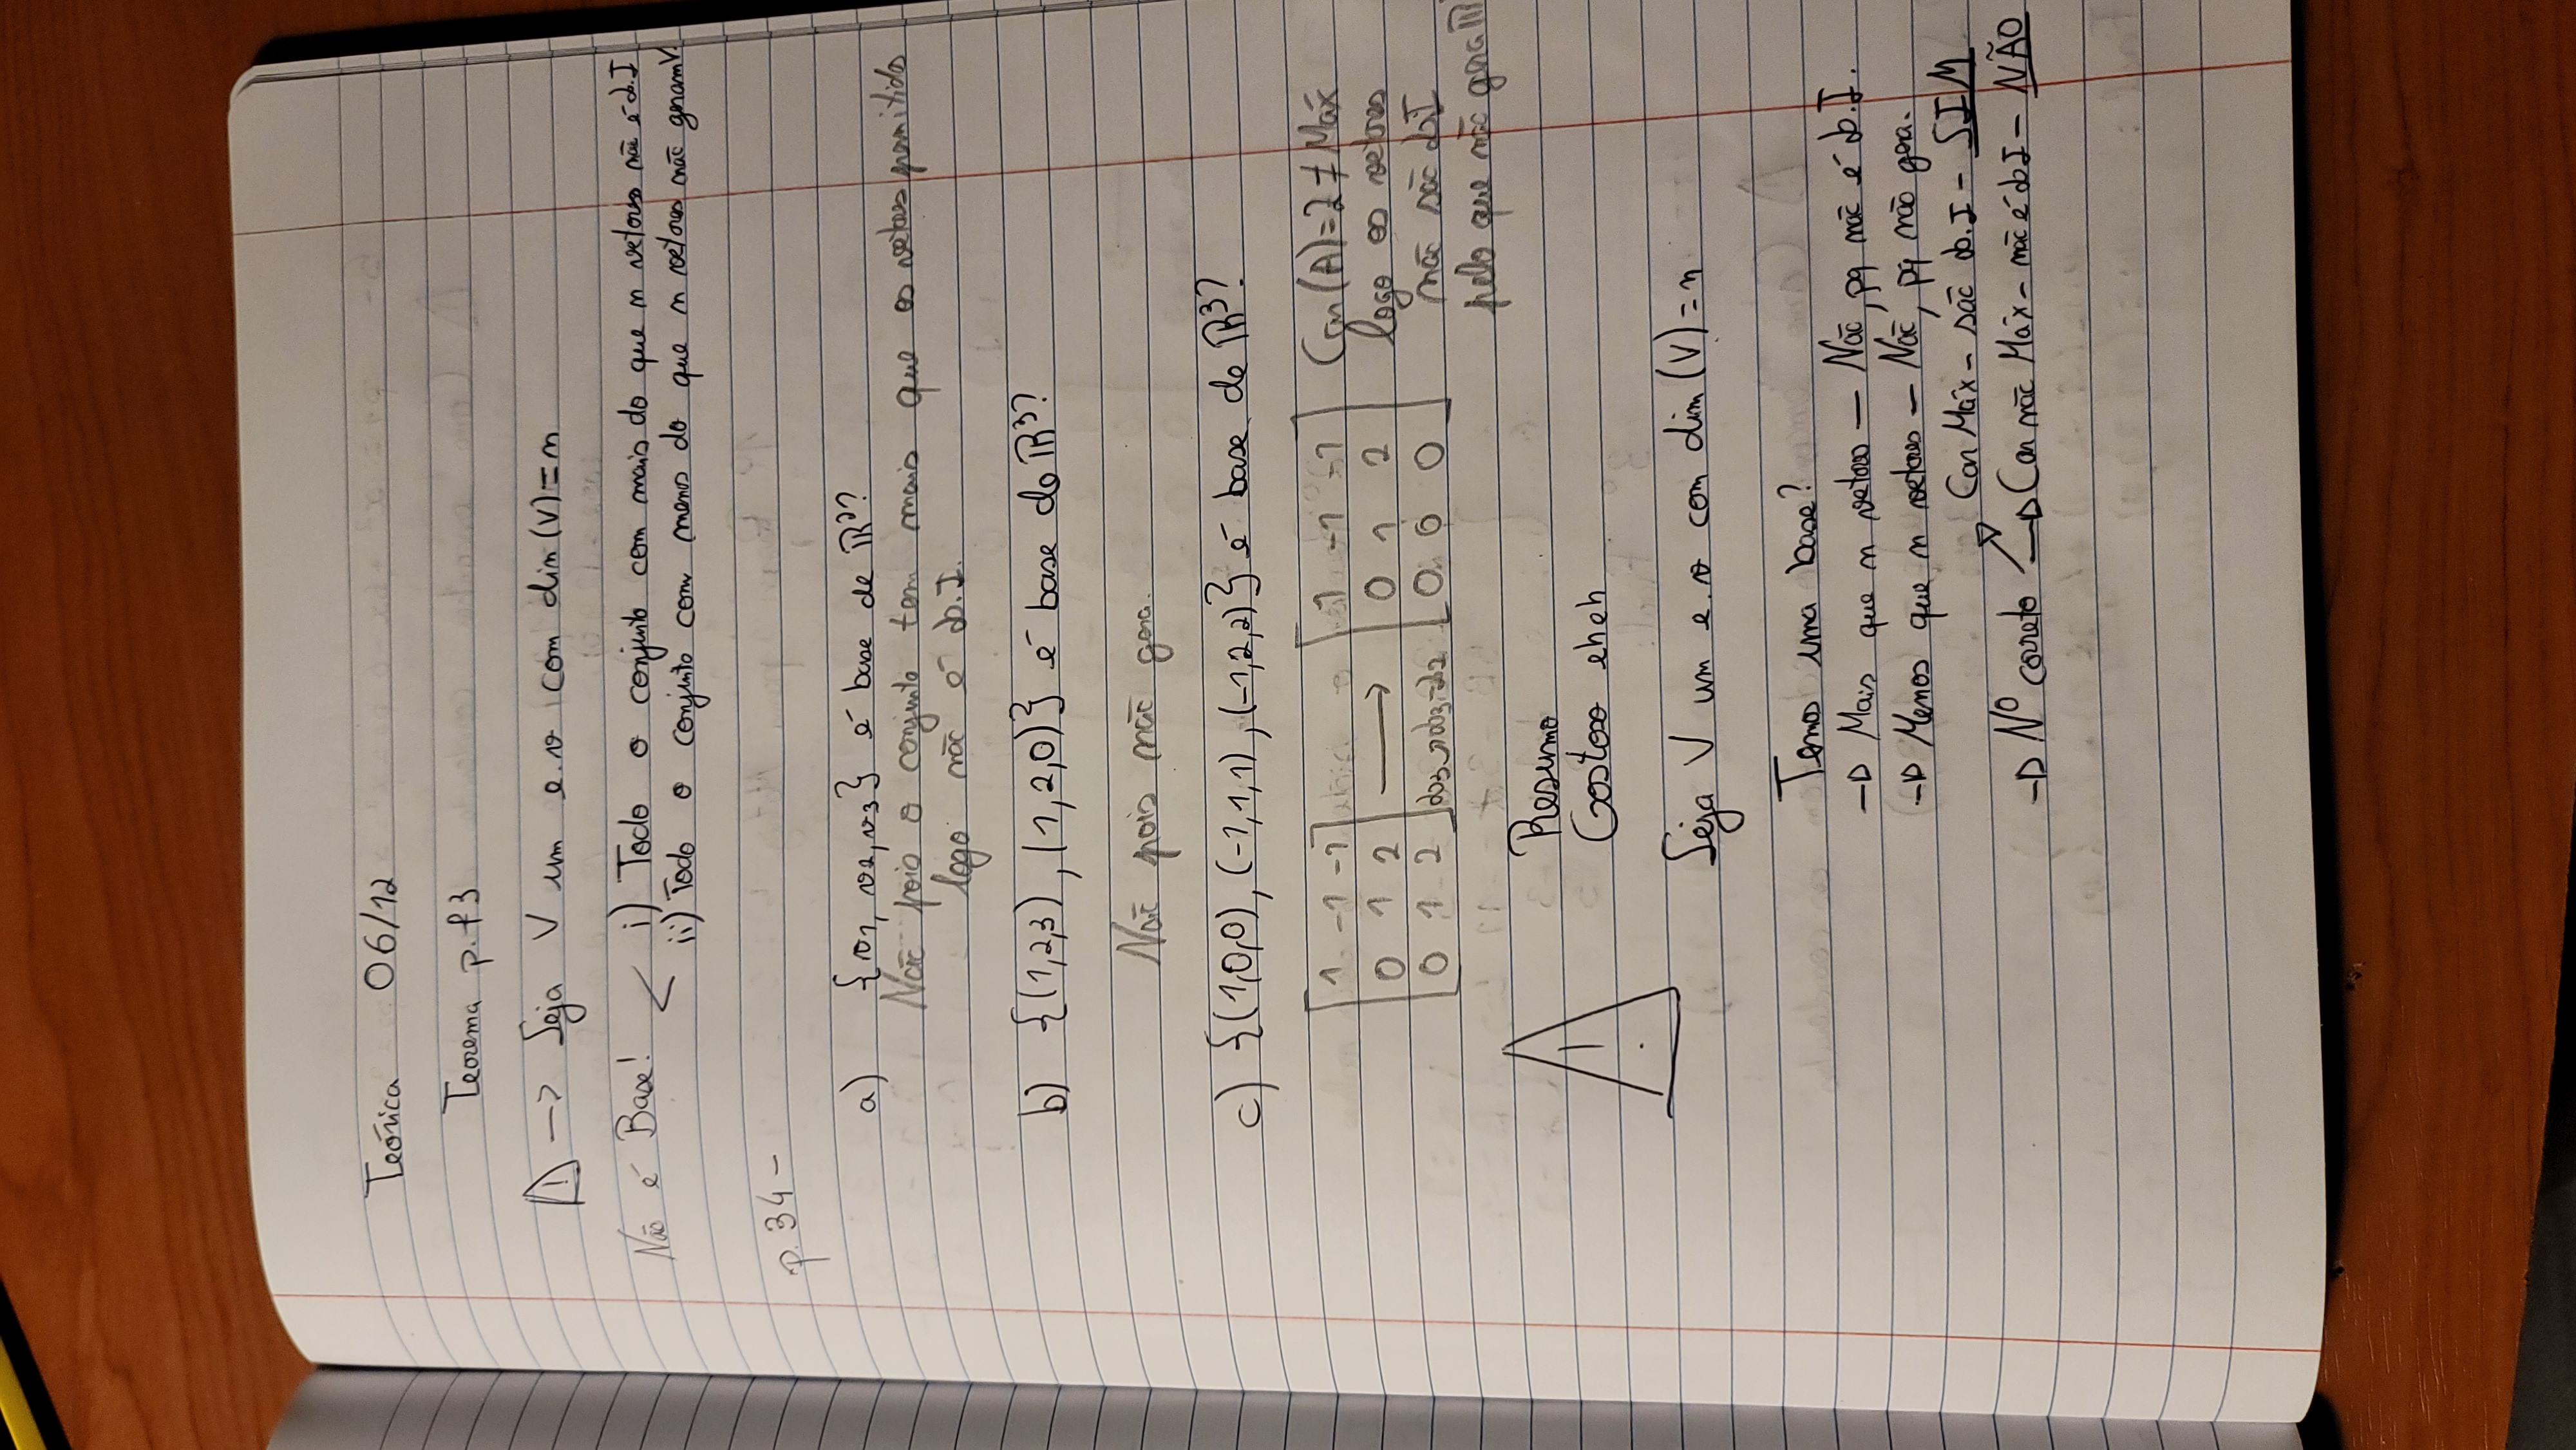 Teórica 06/12
Teorema p. 73
! -> Seja V um e.v com dim (V) = n
Não é Base! < i) Todo o conjunto com mais do que n vetores não é l.I
ii) Todo o conjunto com menos do que n vetores não geram V.
p. 34 -
a) {v1, v2, v3} é base de ℝ²?
Não pois o conjunto tem mais que os vetores permitidos
logo não é l.I.
b) {(1,2,3), (1,2,0)} é base de ℝ³?
Não pois não gera.
c) {(1,0,0), (-1,1,1), (-1,2,2)} é base de ℝ³?
[1 -1 -1] [1 -1 -1] Car(A)=2 ≠ Máx
[0 1 2] → [0 1 2] logo os vetores
[0 1 2] l3→l3-l2 [0 0 0] não são l.I
pelo que não gera ℝ
! Resumo
Gostoso eheh
Seja V um e.v com dim (V) = n
Temos uma base?
-▷ Mais que n vetores — Não, pq não é l.I.
-▷ Menos que n vetores — Não, pq não gera.
↗ Car Máx - são l.I - SIM
-▷ Nº correto -▷ Car não Máx - não é l.I - NÃO